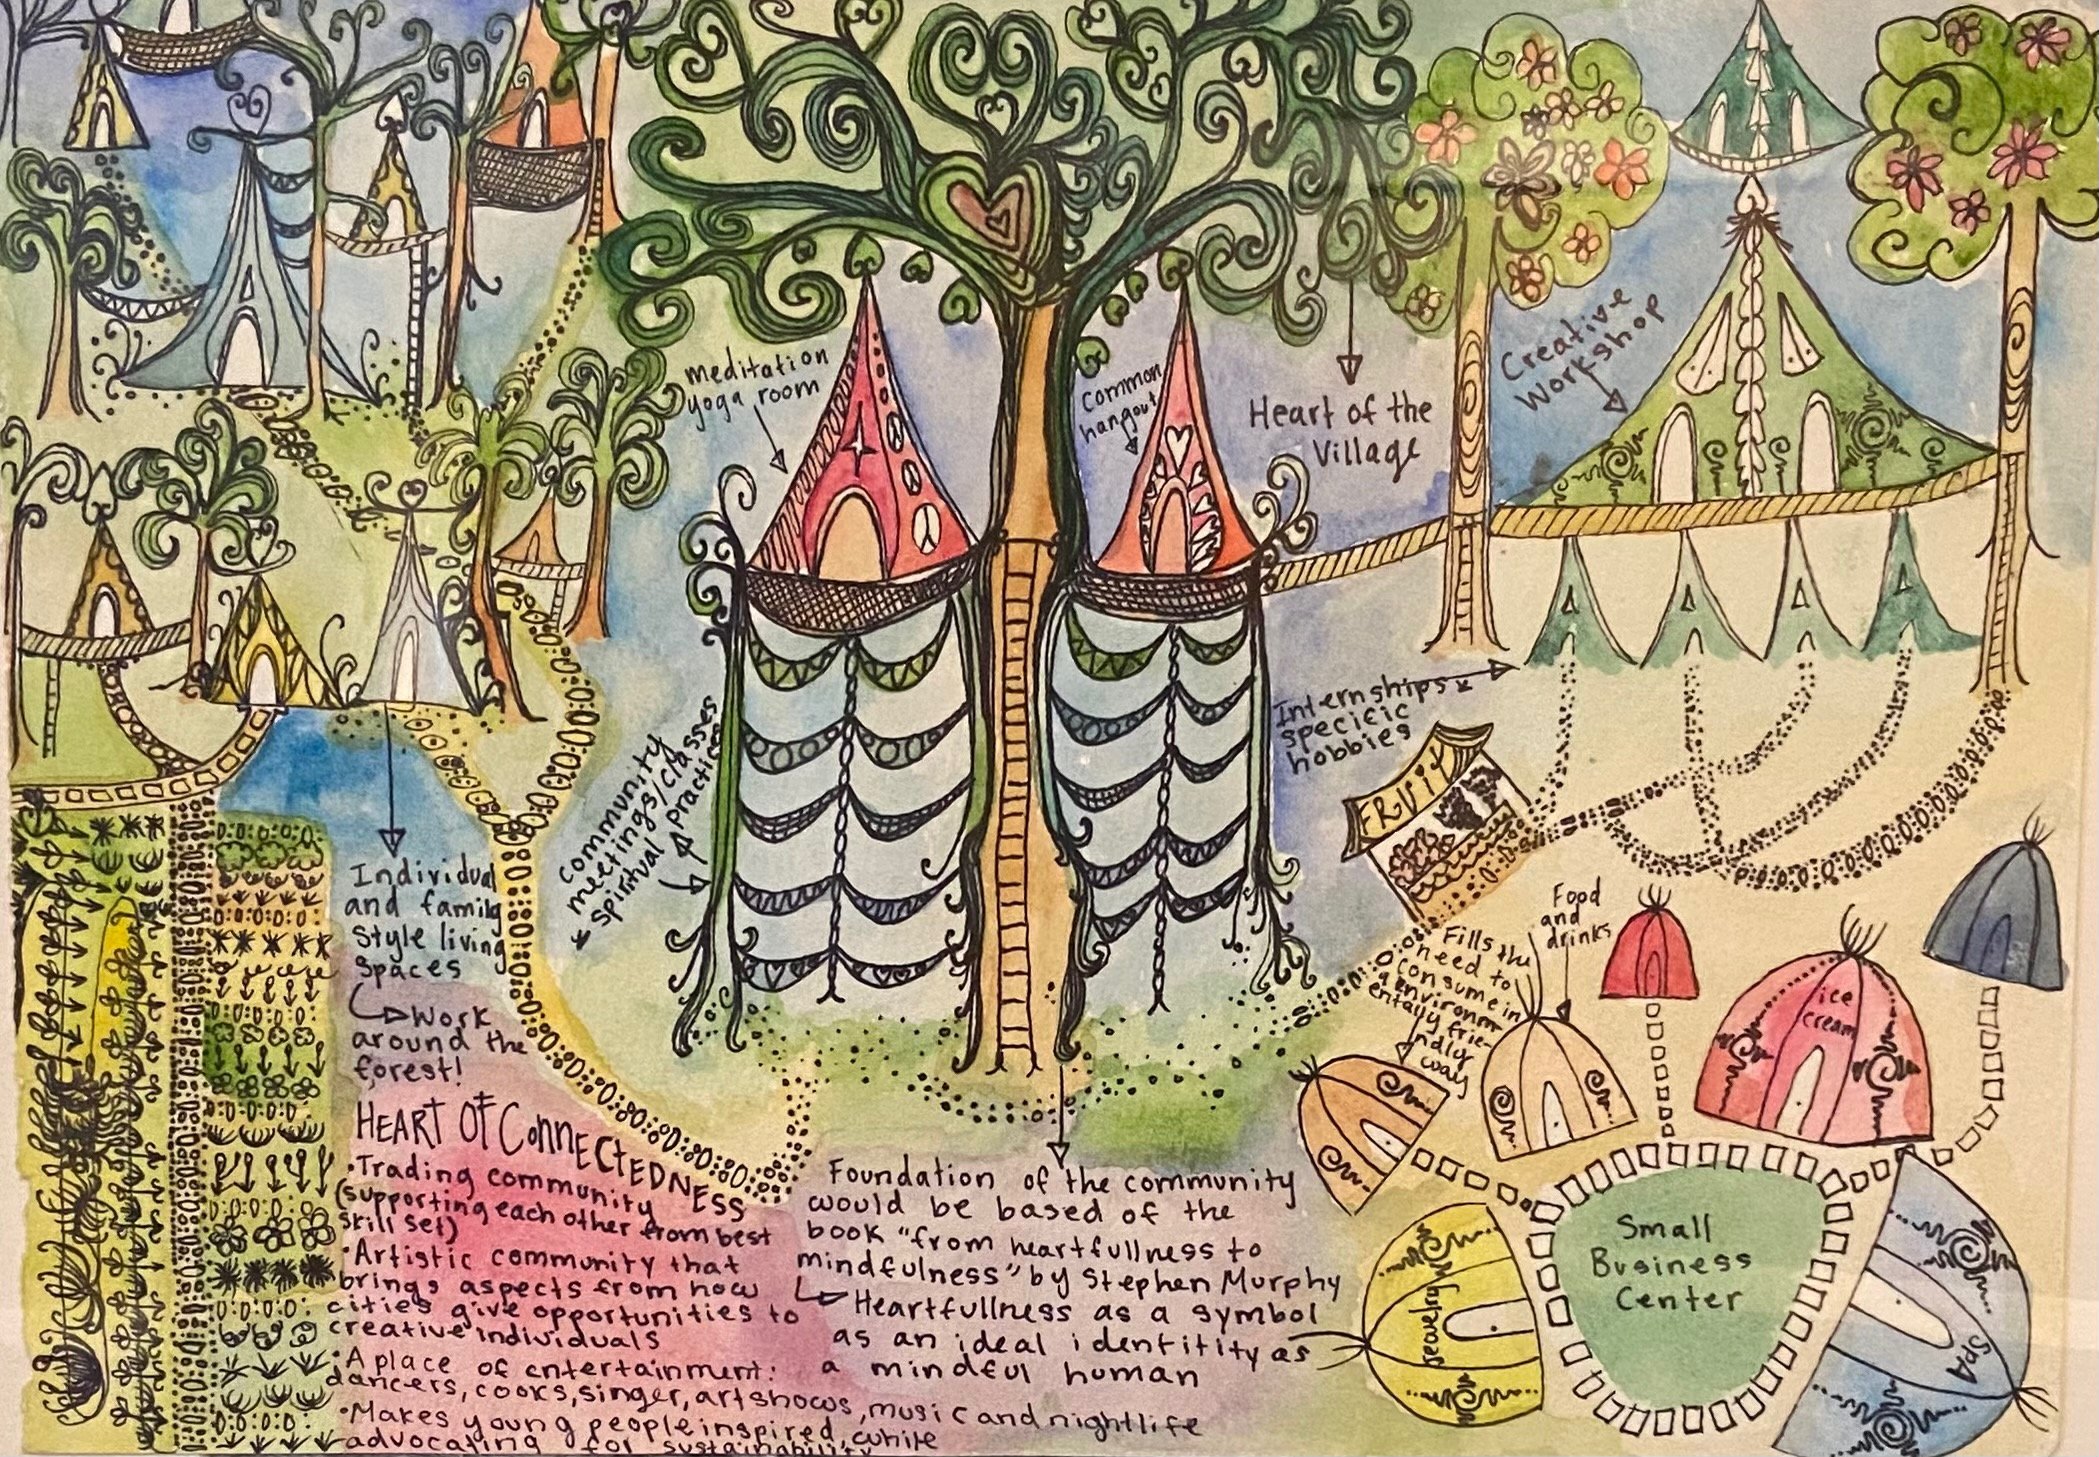 meditation
yoga room
common
hangout
Heart of the
Village
Creative
Workshop
community
meetings/classes
spiritual practices
Internships
specific
hobbies
FRUIT
Individual
and family
style living
spaces
Work
around the
forest!
Fills the
need to
consume in
a environm
entally frie-
ndly
way
Food
and
drinks
ice
cream
HEART OF CONNECTEDNESS
•Trading community
(supporting each other from best
skill set)
•Artistic community that
brings aspects from how
cities give opportunities to
creative individuals
•A place of entertainment:
dancers, cooks, singer, artshows, music and nightlife
•Makes young people inspired, while
advocating for sustainability
Foundation of the community
would be based of the
book "from heartfullness to
mindfulness" by Stephen Murphy
Heartfullness as a symbol
as an ideal identitity as
a mindful human
Small
Business
Center
jewelry
SPA